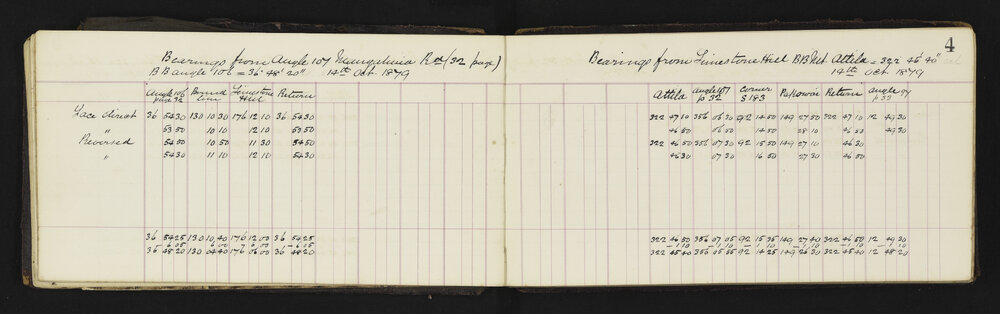 Bearings from Angle 107 Maungakawa Rd (32 page)
BB angle 106 = 36° 48' 20" 14th Oct 1879
Angle 106 page 32 Limestone Hill Return
Face direct 36 54 30 130 10 30 176 12 10 36 54 30
" 53 50 10 10 12 10 53 50
Reversed 54 00 10 50 11 30 54 50
" 54 30 11 10 12 10 54 30
36 54 25 130 10 40 176 12 00 36 54 25
6 05 6 00 6 00 - 6 05
36 48 20 130 04 40 176 06 00 36 48 20
4
Bearings from Limestone Hill BB Net Attila = 322 45' 40"
14th Oct 1879
Attila angle 107 p 32 Corner S 183 Return angle p 33
322 47 10 356 06 30 92 14 50 149 27 50 322 47 10 12 49 30
46 50 06 00 14 50 28 10 46 50 49 30
322 46 50 356 07 30 92 15 50 149 27 10 46 30
46 30 07 30 16 50 27 30 46 50
322 46 50 356 07 05 92 15 35 149 27 40 322 46 50 12 49 30
- 1 10 - 1 10 - 1 10 - 1 10 - 1 10 - 1 10
322 45 40 356 05 55 92 14 25 149 26 30 322 45 40 12 48 20